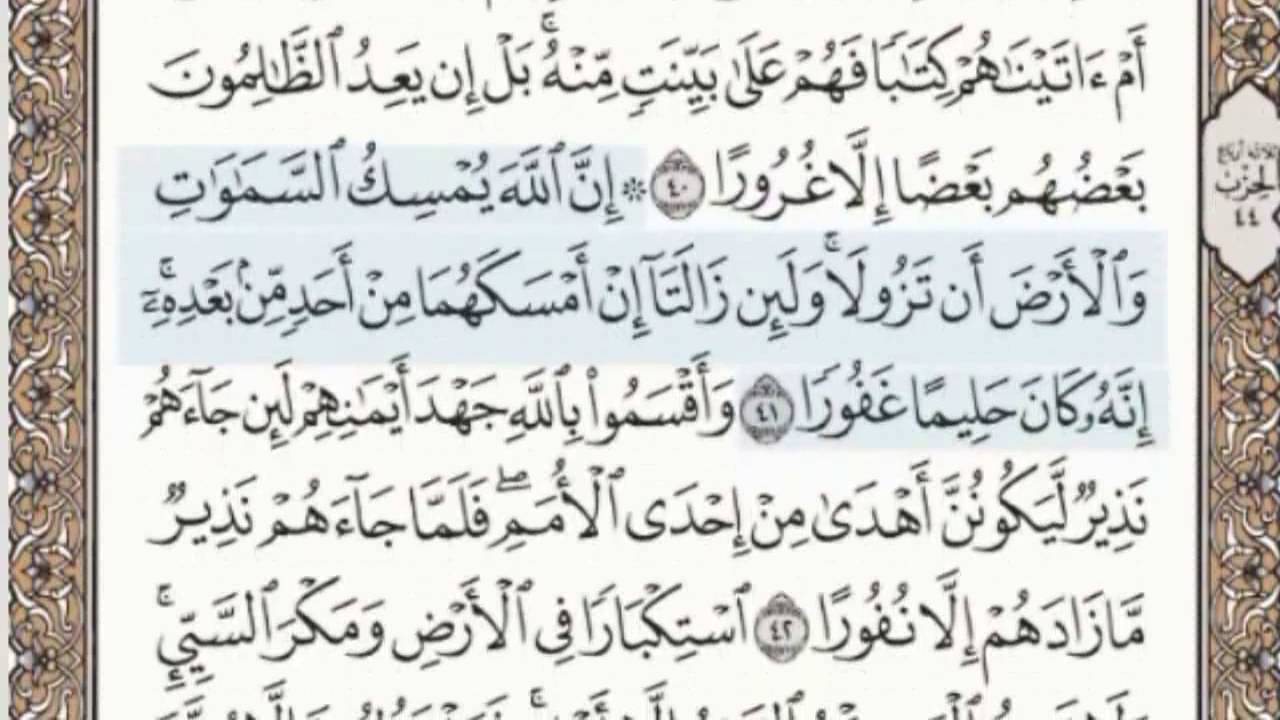 أَمْ ءَاتَيْنَٰهُمْ كِتَٰبًا فَهُمْ عَلَىٰ بَيِّنَتٍ مِّنْهُ ۚ بَلْ إِن يَعِدُ ٱلظَّٰلِمُونَ
بَعْضُهُم بَعْضًا إِلَّا غُرُورًا ٤٠ ۞ إِنَّ ٱللَّهَ يُمْسِكُ ٱلسَّمَٰوَٰتِ
وَٱلْأَرْضَ أَن تَزُولَا ۚ وَلَئِن زَالَتَآ إِنْ أَمْسَكَهُمَا مِنْ أَحَدٍ مِّنۢ بَعْدِهِۦٓ ۚ
إِنَّهُۥ كَانَ حَلِيمًا غَفُورًا ٤١ وَأَقْسَمُوا۟ بِٱللَّهِ جَهْدَ أَيْمَٰنِهِمْ لَئِن جَآءَهُمْ
نَذِيرٌ لَّيَكُونُنَّ أَهْدَىٰ مِنْ إِحْدَى ٱلْأُمَمِ ۖ فَلَمَّا جَآءَهُمْ نَذِيرٌ
مَّا زَادَهُمْ إِلَّا نُفُورًا ٤٢ ٱسْتِكْبَارًا فِى ٱلْأَرْضِ وَمَكْرَ ٱلسَّيِّئِ ۚ
ثلاثة أرباع
الحزب
٤٤